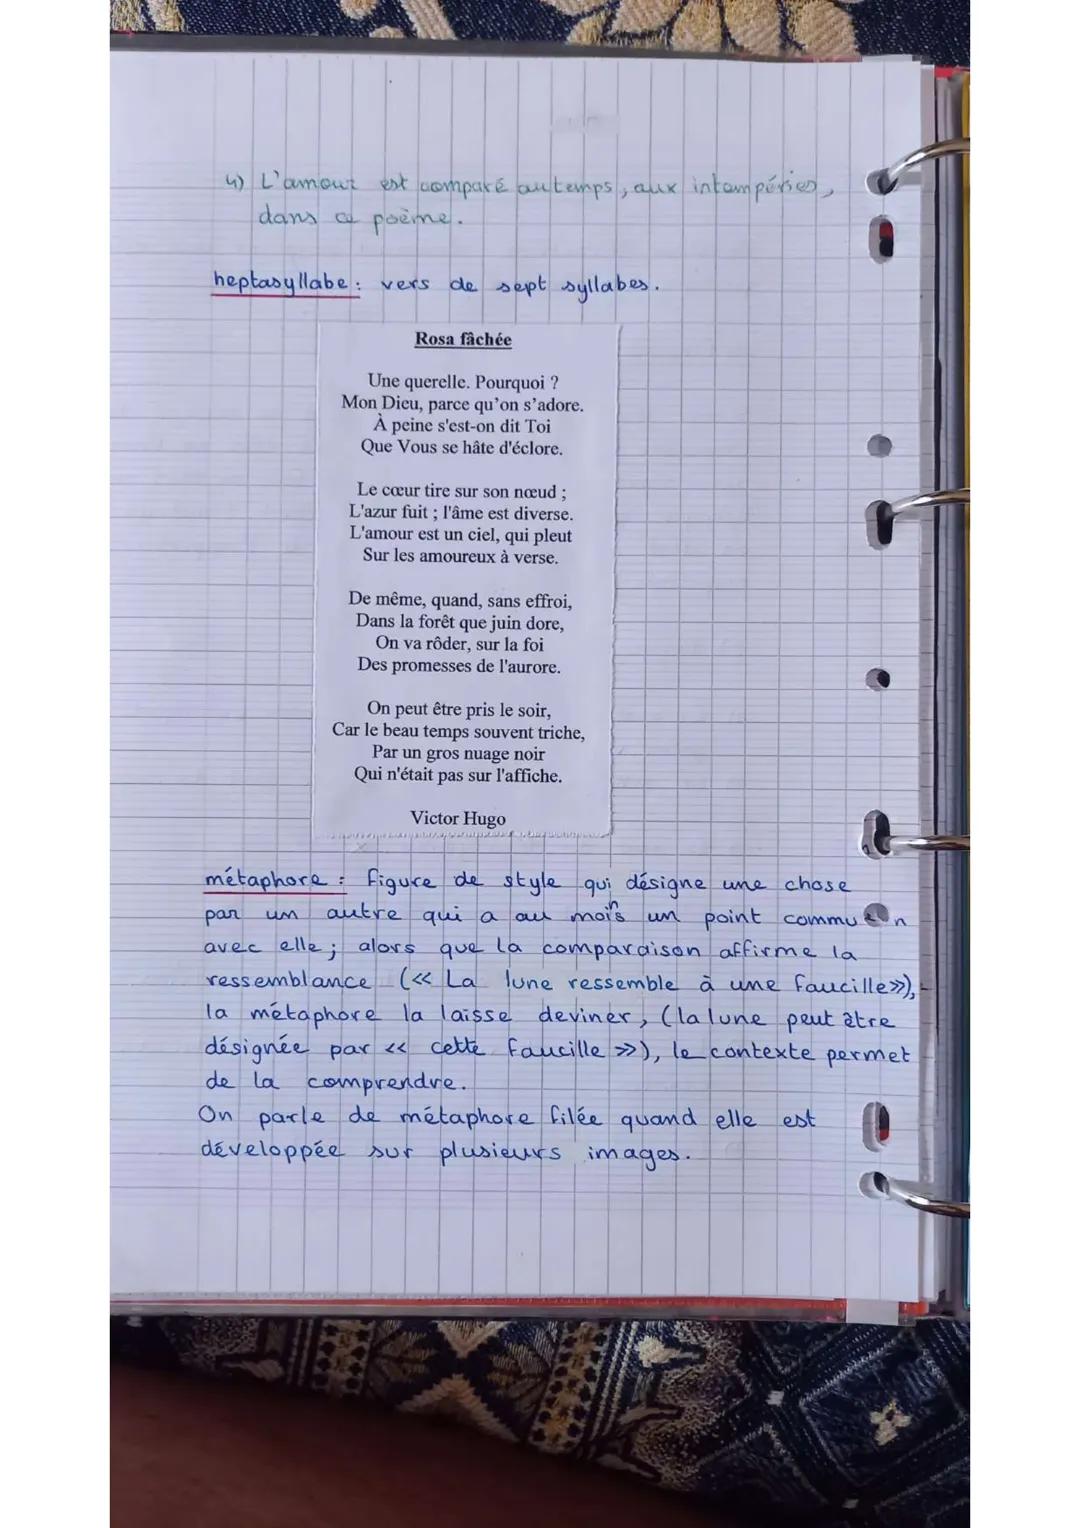 4) L'amour est comparé au temps, aux intempéries,
dans ce poème.
heptasyllabe : vers de sept syllabes.
Rosa fâchée
Une querelle. Pourquoi ?
Mon Dieu, parce qu'on s'adore.
À peine s'est-on dit Toi
Que Vous se hâte d'éclore.
Le cœur tire sur son nœud ;
L'azur fuit ; l'âme est diverse.
L'amour est un ciel, qui pleut
Sur les amoureux à verse.
De même, quand, sans effroi,
Dans la forêt que juin dore,
On va rôder, sur la foi
Des promesses de l'aurore.
On peut être pris le soir,
Car le beau temps souvent triche,
Par un gros nuage noir
Qui n'était pas sur l'affiche.
Victor Hugo
métaphore : figure de style qui désigne une chose
par un autre qui a au moins un point commun
avec elle ; alors que la comparaison affirme la
ressemblance (<< La lune ressemble à une faucille>>),
la métaphore la laisse deviner, (la lune peut être
désignée par << cette faucille >>), le contexte permet
de la comprendre.
On parle de métaphore filée quand elle est
développée sur plusieurs images.